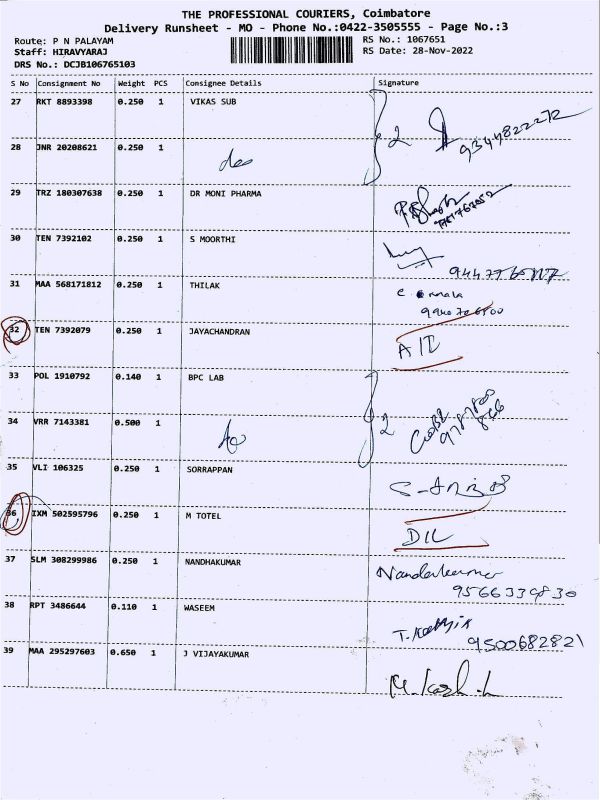 THE PROFESSIONAL COURIERS, Coimbatore
Delivery Runsheet - MO - Phone No.:0422-3505555 - Page No.:3
Route: P N PALAYAM
RS No.: 1067651
Staff: HIRAVYARAJ
RS Date: 28-Nov-2022
DRS No.: DCJB106765103
S No Consignment No Weight PCS Consignee Details Signature
27 RKT 8893398 0.250 1 VIKAS SUB
2 9344822272
28 JNR 20208621 0.250 1 do
29 TRZ 180307638 0.250 1 DR MONI PHARMA
30 TEN 7392102 0.250 1 S MOORTHI
31 MAA 568171812 0.250 1 THILAK
32 TEN 7392079 0.250 1 JAYACHANDRAN
33 POL 1910792 0.140 1 BPC LAB
2
34 VRR 7143381 0.500 1 do
35 VLI 106325 0.250 1 SORRAPPAN
36 IXM 502595796 0.250 1 M TOTEL DIL
37 SLM 308299986 0.250 1 NANDHAKUMAR Nandakumar
9566339830
38 RPT 3486644 0.110 1 WASEEM
9500682821
39 MAA 295297603 0.650 1 J VIJAYAKUMAR